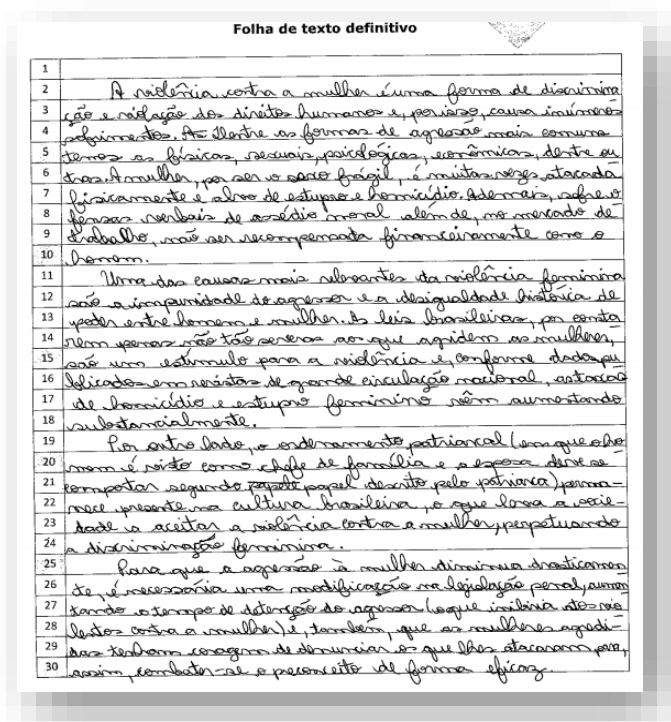 Folha de texto definitivo
1
2 A violência contra a mulher é uma forma de discrimina
3 ção e violação dos direitos humanos e, por isso, causa inúmeros
4 sofrimentos. As Dentre as formas de agressão mais comuns
5 temos as físicas, sexuais, psicológicas, econômicas, dentre ou
6 tras. A mulher, por ser o sexo frágil, é muitas vezes atacada
7 fisicamente e alvo de estupro e homicídio. Ademais, sofre o
8 fensas verbais de assédio moral além de, no mercado de
9 trabalho, não ser recompensada financeiramente como o
10 homem.
11 Uma das causas mais relevantes da violência feminina
12 são a impunidade do agressor e a desigualdade histórica de
13 poder entre homem e mulher. As leis brasileiras, por conta
14 rem penas não tão severas aos que agridem as mulheres,
15 são um estímulo para a violência e, conforme dados pu
16 blicados em revistas de grande circulação nacional, as taxas
17 de homicídio e estupro feminino vêm aumentando
18 substancialmente.
19 Por outro lado, o ordenamento patriarcal (em que o ho
20 mem é visto como chefe de família e a esposa deve se
21 comportar segundo papele papel descrito pelo patriarca) perma-
22 nece presente na cultura brasileira, o que leva a socie-
23 dade a aceitar a violência contra a mulher, perpetuando
24 a discriminação feminina.
25 Para que a agressão à mulher diminua drasticamen
26 te, é necessária uma modificação na legislação penal, aumen
27 tando o tempo de detenção do agressor (o que inibiria atos vio
28 lentos contra a mulher) e, também, que as mulheres agredi-
29 das tenham coragem de denunciar os que lhes atacaram para,
30 assim, combater-se o preconceito de forma eficaz.